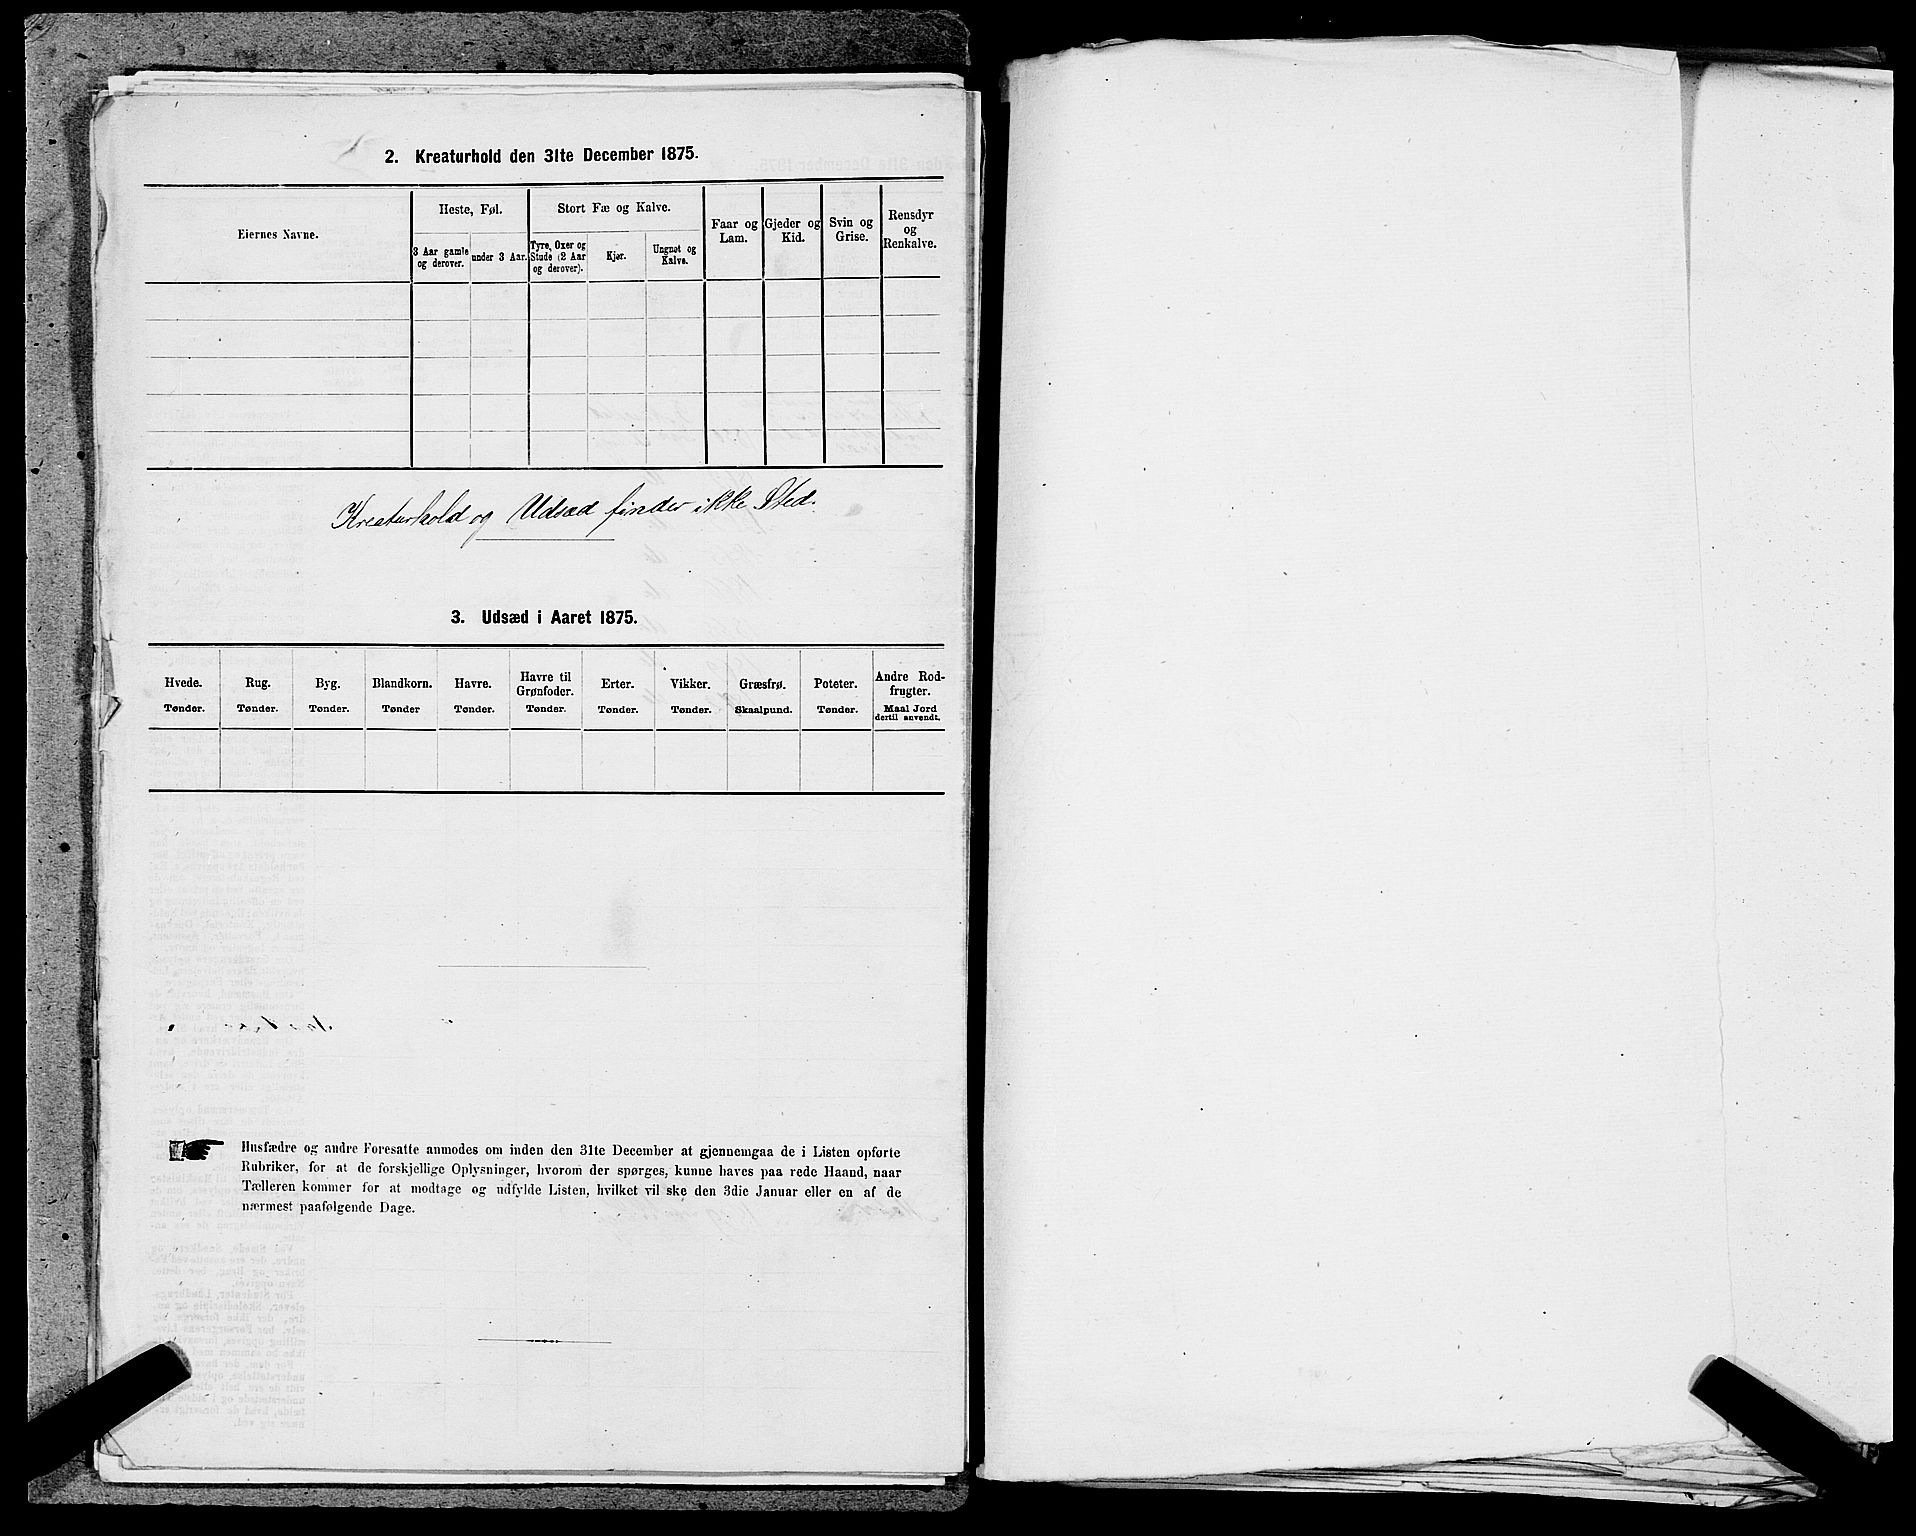 2. Kreaturhold den 31te December 1875.
Eiernes Navne.
Heste, Føl.
3 Aar gamle
og derover.
under 3 Aar.
Stort Fæ og Kalve.
Tyre, Oxer og
Stude (2 Aar
og derover).
Kjør.
Ungnøt og
Kalve.
Faar og
Lam.
Gjeder og
Kid.
Svin og
Grise.
Rensdyr
og
Renkalve.
Kreaturhold og Udsæd finder ikke Sted.
3. Udsæd i Aaret 1875.
Hvede.
Tønder.
Rug.
Tønder.
Byg.
Tønder.
Blandkorn.
Tønder
Havre.
Tønder.
Havre til
Grønfoder.
Tønder.
Erter.
Tønder.
Vikker.
Tønder.
Græsfrø.
Skaalpund.
Poteter.
Tønder.
Andre Rod-
frugter.
Maal Jord
dertil anvendt.
Husfædre og andre Foresatte anmodes om inden den 31te December at gjennemgaa de i Listen opførte
Rubriker, for at de forskjellige Oplysninger, hvorom der spørges, kunne haves paa rede Haand, naar
Tælleren kommer for at modtage og udfylde Listen, hvilket vil ske den 3die Januar eller en af de
nærmest paafølgende Dage.